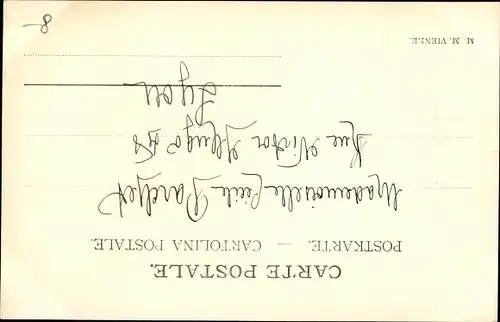 CARTE POSTALE.
POSTKARTE. — CARTOLINA POSTALE.
Mademoiselle Cécile
Rue Victor Hugo 58
Lyon
M. M. VIENNE.
8